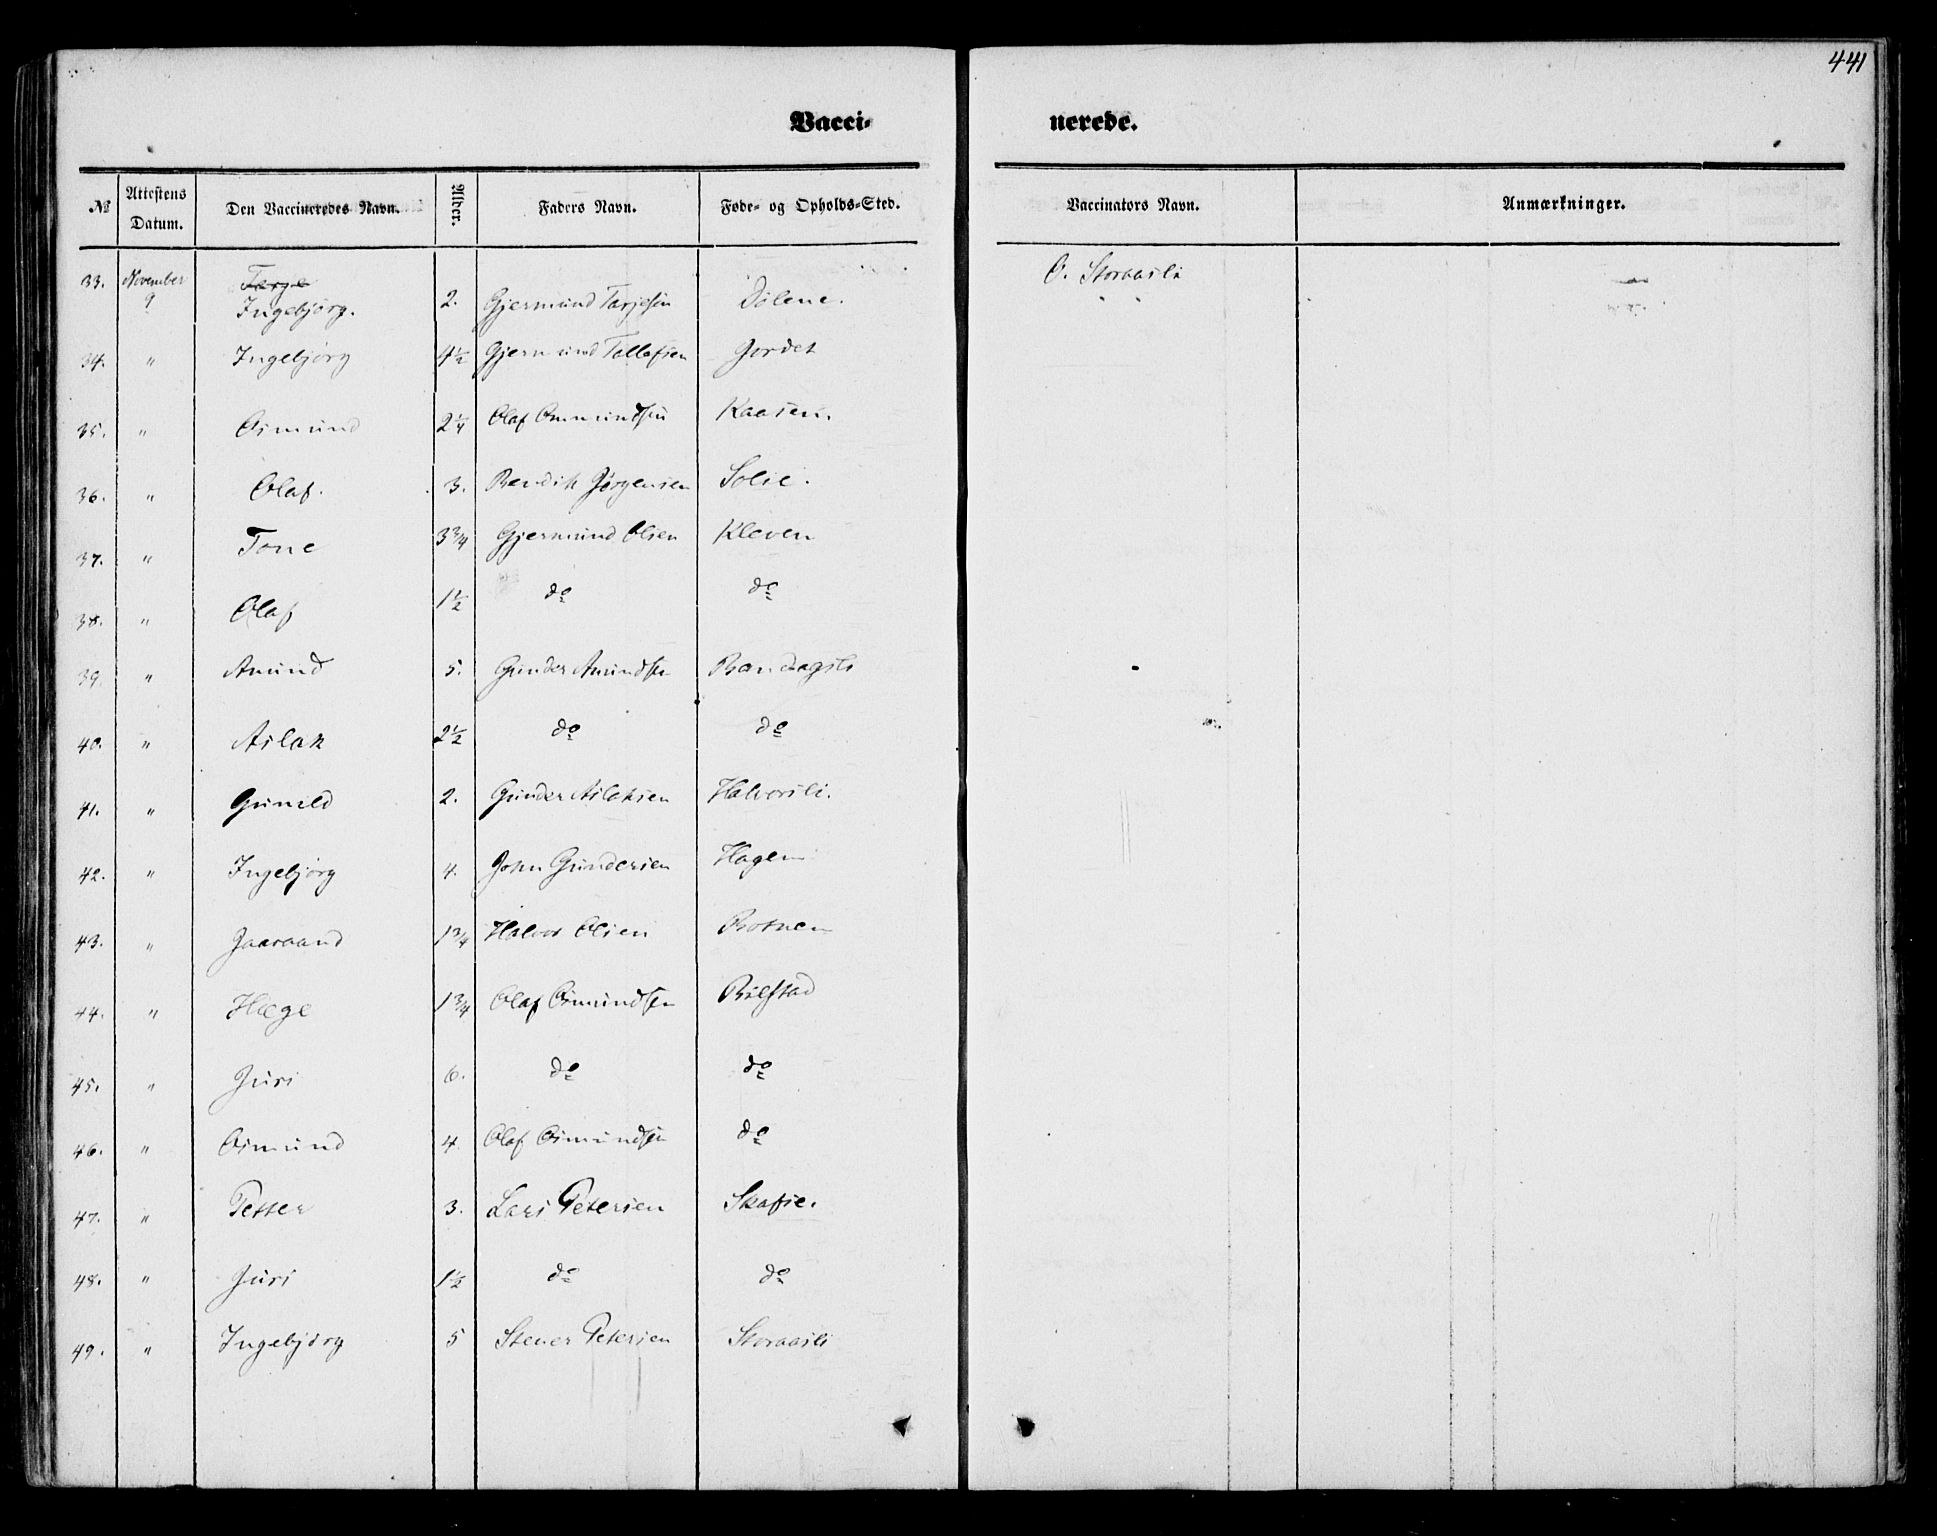 441
Vacci-
nerede.
№ Attestens Datum. Den Vaccineredes Navn. Alder. Faders Navn. Føde- og Opholds-Sted. Vaccinators Navn. Anmærkninger.
33. November 9 Targe Ingebjørg. 2. Gjermund Tarjesen Dølene. O. Storaasli
34. " Ingebjørg 4½ Gjermund Tollefsen Jordet
35. " Osmund 2¼ Olaf Osmundsen Kaasen.
36. " Olaf. 3. Bendik Jørgensen Solie.
37. " Tone 3¾ Gjermund Olsen Kleven
38. " Olaf 1½ do do
39. " Amund 5. Gunder Amundsen Bandagsli
40. " Aslak 2½ do do
41. " Gunild 2. Gunder Aslaksen Halvorsli.
42. " Ingebjørg 4. John Gundersen Hagen
43. " Jaaraand 1¾ Halvor Olsen Botnen
44. " Hæge 1¾ Olaf Osmundsen
45. " Juri 6. do do
46. " Osmund 4 Olaf Osmundsen do
47. " Petter 3. Lars Petersen Skafse.
48. " Juri 1½ do do
49. " Ingebjørg 5 Stener Petersen Storaasli